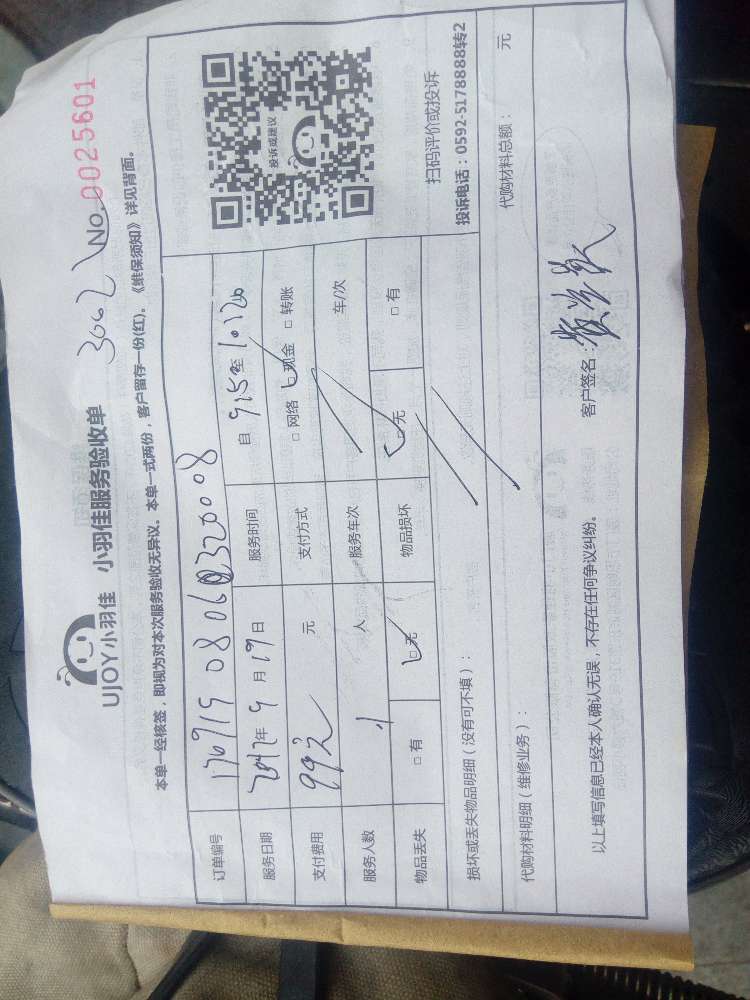 UJOY小羽佳 小羽佳服务验收单 3662 No.0025601
本单一经核签，即视为对本次服务验收无异议。本单一式两份，客户留存一份(红)。《维保须知》详见背面。
订单编号
服务日期 2017年9月19日 服务时间 自 9:15至10:20
支付费用 99元 元 支付方式 □ 网络 □ 现金 □ 转账
服务人数 1 人 服务车次 车/次
物品丢失 □ 有 □ 无 物品损坏 □ 无 □ 有
投诉或建议
扫码评价或投诉
投诉电话：0592-5178888转2
损坏或丢失物品明细（没有可不填）：
代购材料明细（维修业务）： 代购材料总额： 元
以上填写信息已经本人确认无误，不存在任何争议纠纷。 客户签名：